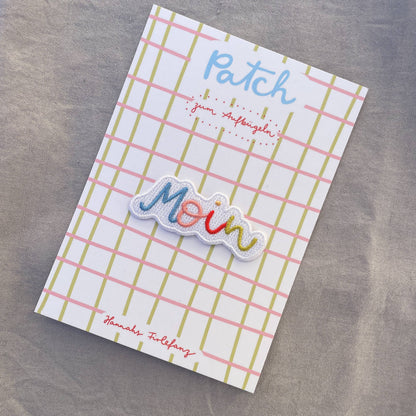 Patch
zum Aufbügeln
Moin
Hannahs Firlefanz